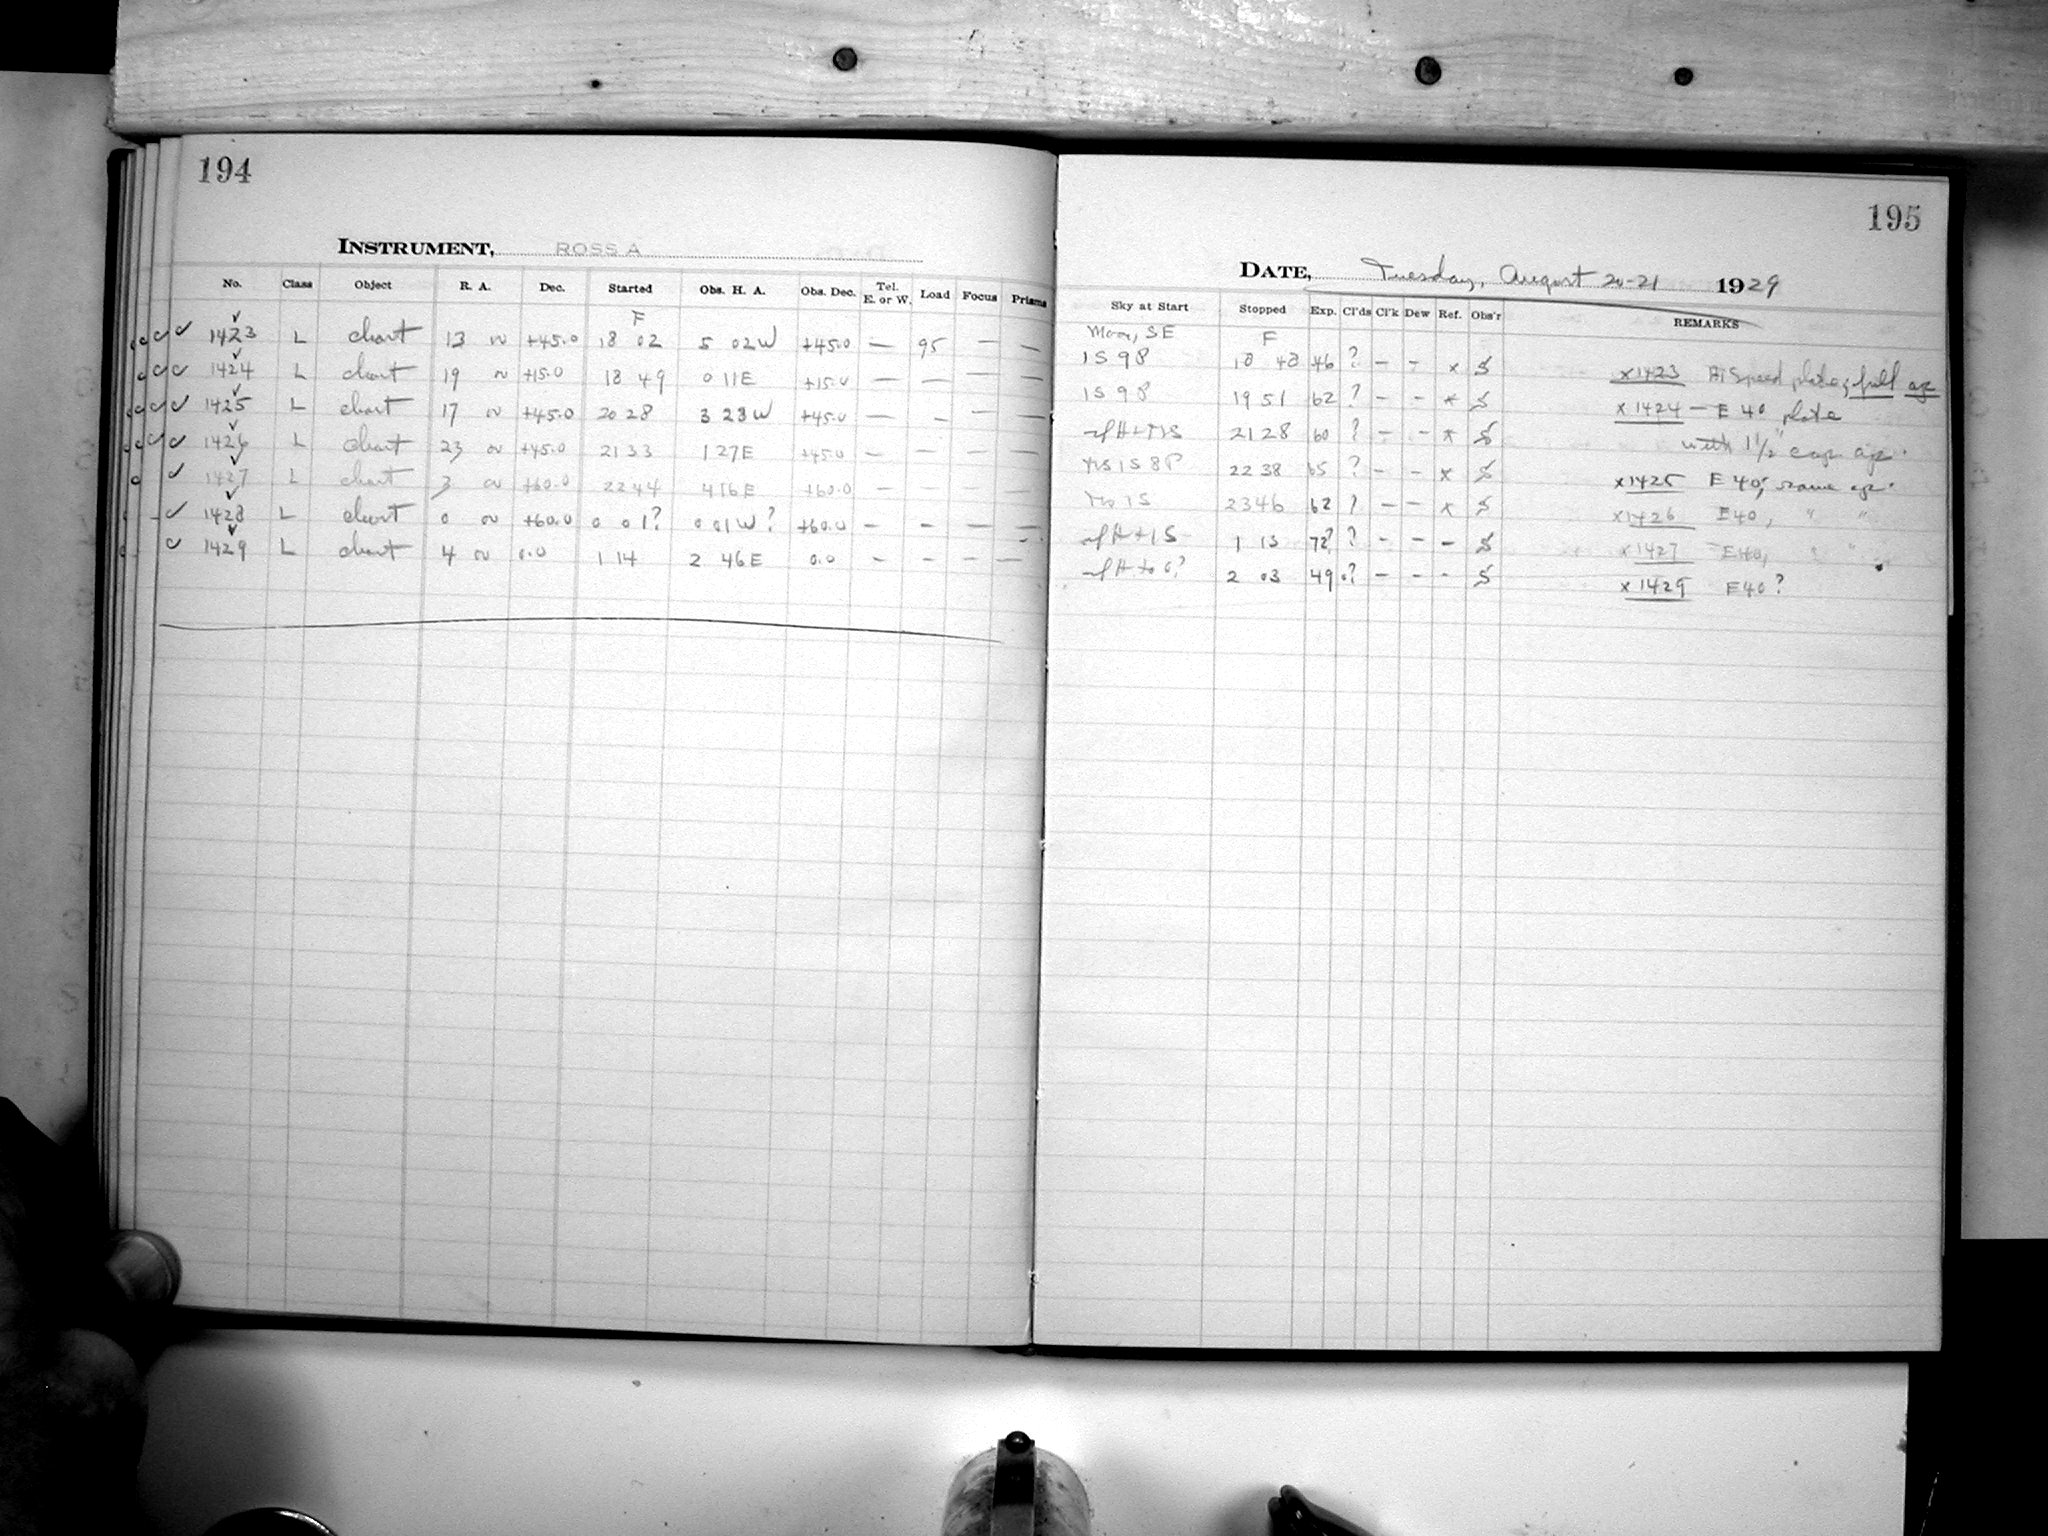 194
INSTRUMENT, ROSS A
No. Class Object R. A. Dec. Started Obs. H. A. Obs. Dec. Tel. E. or W. Load Focus Prisms
F
1423 L chart 13 +45.0 18 02 5 02W +45.0 — 95 — —
1424 L chart 19 +15.0 18 49 0 11E +15.0 — — — —
1425 L chart 17 +45.0 20 28 3 23W +45.0 — — — —
1426 L chart 23 +45.0 21 33 1 27E +45.0 — — — —
1427 L chart 3 +60.0 22 44 4 16E +60.0 — — — —
1428 L chart 0 +60.0 0 01? 0 01W? +60.0 — — — —
1429 L chart 4 0.0 1 14 2 46E 0.0 — — — —
195
DATE, Tuesday, August 20-21 1929
Sky at Start Stopped Exp. Cl'ds Cl'k Dew Ref. Obs'r REMARKS
Moon, SE F
1S 98 18 48 46 ? — — x S
1S 98 19 51 62 ? — — x S
21 28 60 ? — — x S
22 38 65 ? — — x S
23 46 62 ? — — x S
1 13 72? ? — — — S
2 03 49 ? — — - S
x 1423 Hi Speed plate, full ap
x 1424 — E 40 plate
with 1½" cap ap.
x 1425 E 40, same ap.
x 1426 E40, " "
x 1427 E40, " "
x 1429 E40?